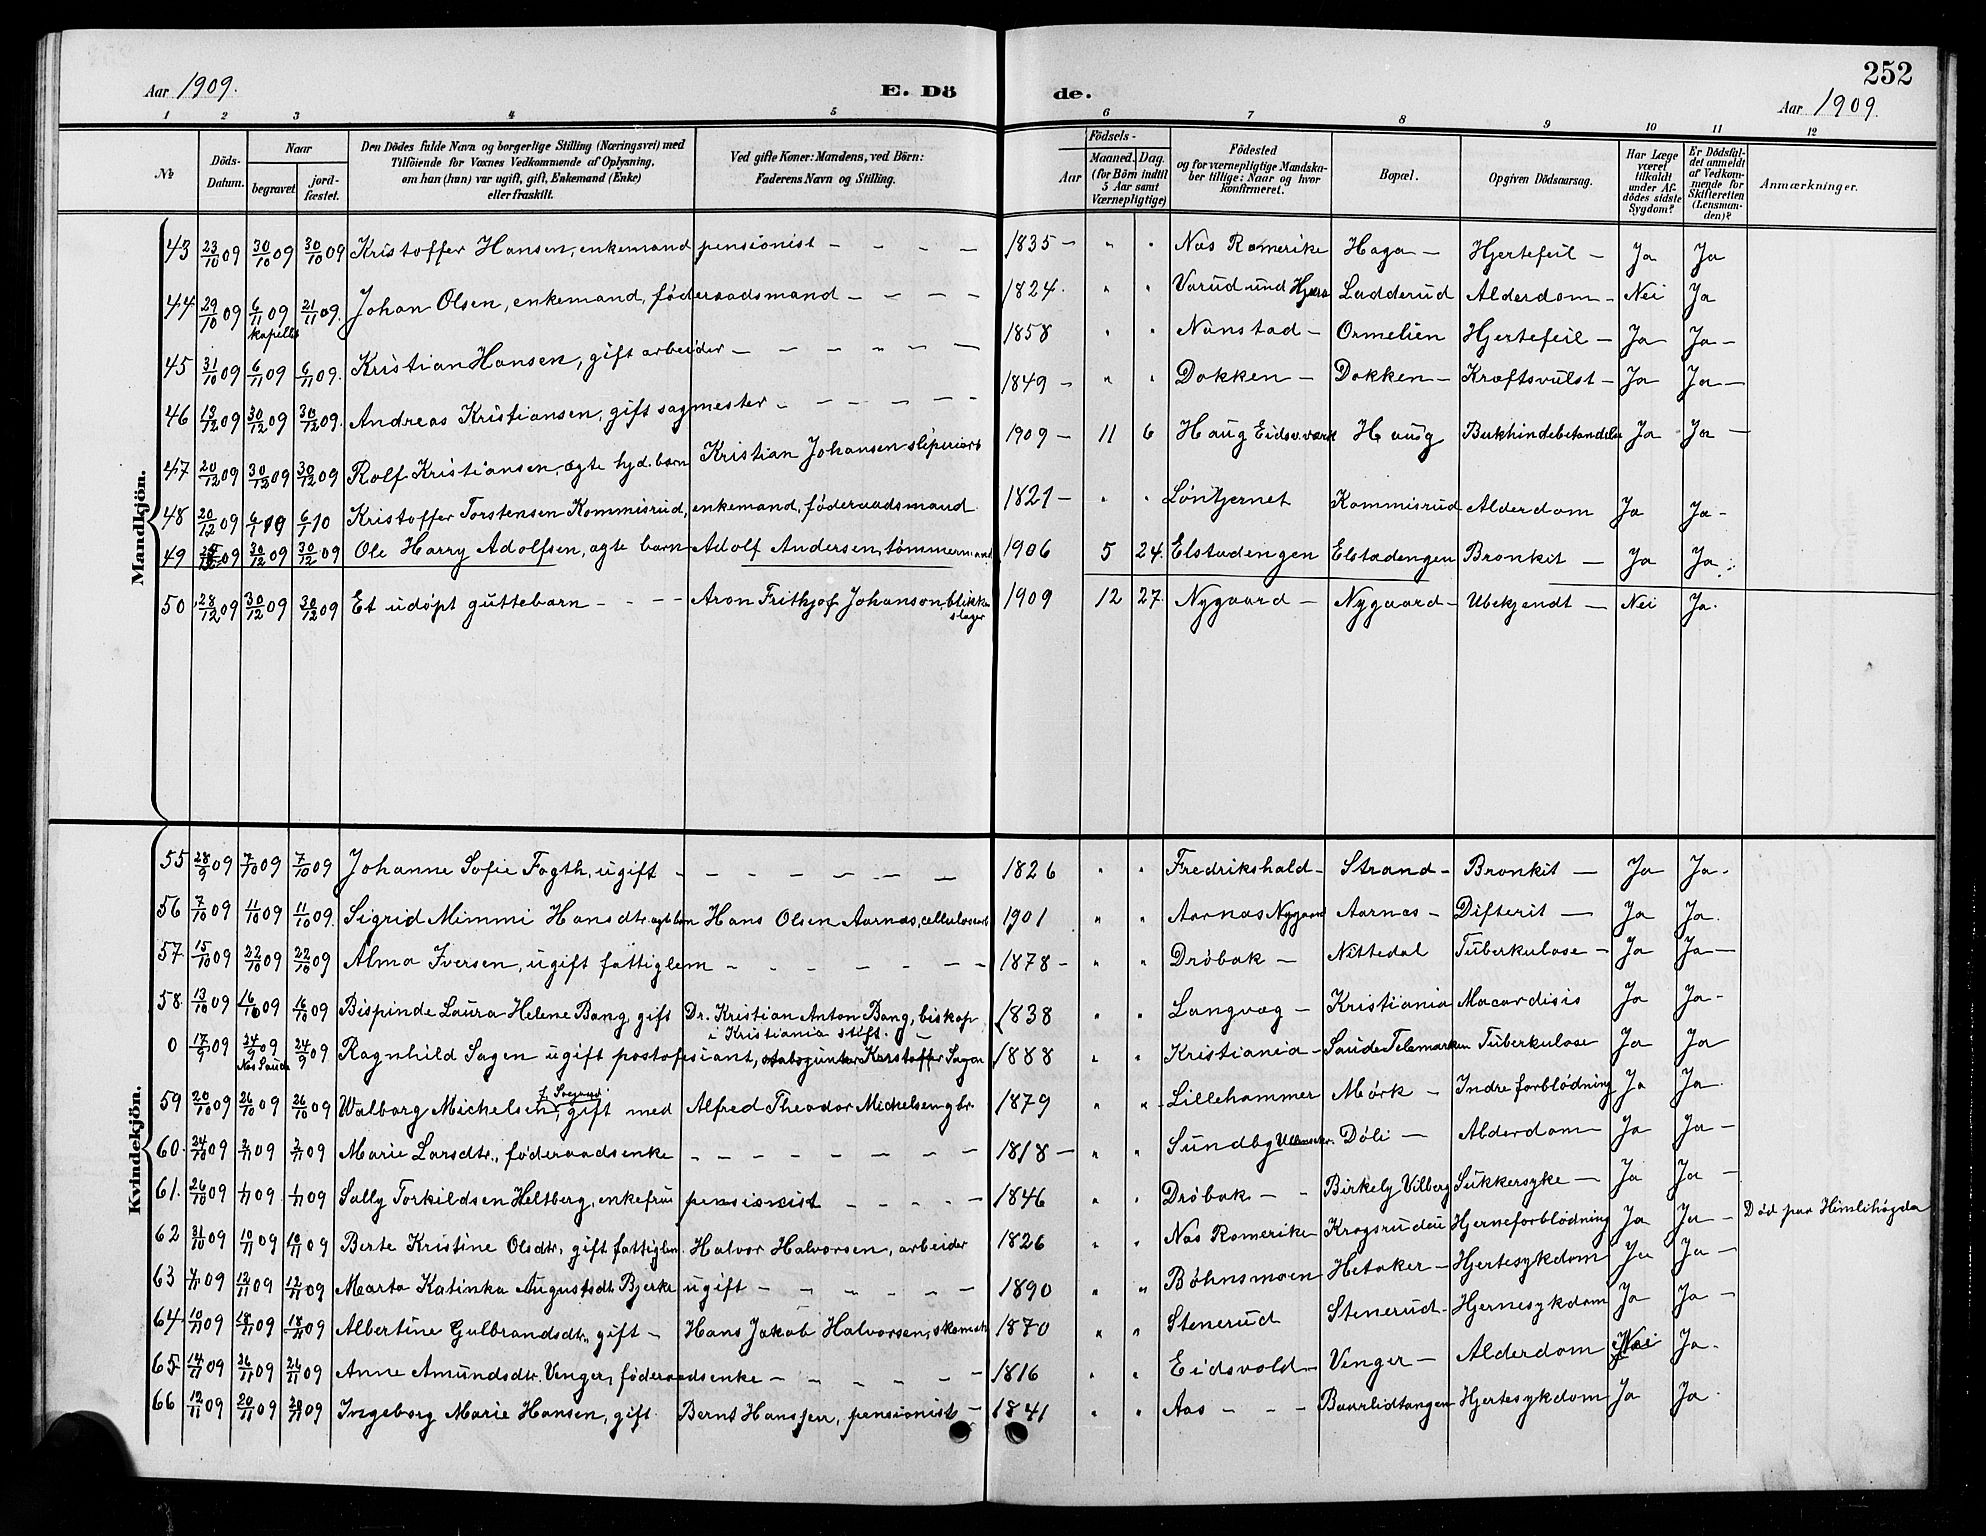 252
Aar 1909. E. Dö de. Aar 1909
1 2 3 4 5 6 7 8 9 10 11 12
№ Döds-Datum. Naar begravet. jord-fæstet. Den Dödes fulde Navn og borgerlige Stilling (Næringsvei) med Tilföiende for Voxnes Vedkommende af Oplysning, om han (hun) var ugift, gift, Enkemand (Enke) eller fraskilt. Ved gifte Koner: Mandens, ved Börn: Faderens Navn og Stilling. Födsels- Aar Maaned. Dag. (for Börn indtil 5 Aar samt Værnepligtige) Födested og for værnepligtige Mandskaber tillige: Naar og hvor konfirmeret. Bopæl. Opgiven Dödsaarsag. Har Læge været tilkaldt under Afdödes sidste Sygdom? Er Dödsfaldet anmeldt af Vedkommende for Skifteretten (Lensmanden)? Anmærkninger.
Mandkjön.
43 23/10 09 30/10 09 30/10 09 Kristoffer Hansen, enkemand pensionist – – – – 1835 – " " Nas Romerike Haga – Hjertefeil – Ja Ja
44 29/10 09 6/11 09 kapellet 21/11 09. Johan Olsen, enkemand, föderaadsmand – – – – 1824. " " Varud und Ladderud Alderdom – Nei Ja
45 31/10 09 6/11 09 6/11 09. Kristian Hansen, gift arbeider – – – – – – 1858 " " Nanstad – Ormelien Hjertefeil – Ja Ja –
46 19/12 09 30/12 09 30/12 09. Andreas Kristiansen, gift sagmester – – – – – – 1849 – " " Dokken – Dokken – Kræftsvulst – Ja Ja –
47 20/12 09 30/12 09 30/12 09 Rolf Kristiansen, ægte hjd. barn Kristian Johansen sliperiarb 1909 – 11 6 Haug Eidsv.værk Haug Bukhindebetændelse Ja Ja –
48 20/12 09 6/1 10 6/1 10 Kristoffer Torstensen Kommisrud, enkemand, föderaadsmand 1821 – " " Löntjernet Kommisrud Alderdom Ja Ja –
49 09 30/12 09 30/12 09 Ole Harry Adolfsen, ægte barn – Adolf Andersen, tömmermand 1906 5 24. Elstadengen Elstadengen Bronkit – Ja Ja
50 28/12 09 30/12 09 30/12 09 Et udöpt guttebarn – – – – Aron Frithjof Johanson, blikkenslager 1909 12 27. Nygaard – Nygaard – Ubekjendt – Nei Ja.
Kvindekjön.
55 28/9 09 7/10 09 7/10 09 Johanne Sofie Fogth, ugift – – – – – – – 1826 " " Fredrikshald – Strand – Bronkit – Ja Ja.
56 7/10 09 11/10 09 11/10 09. Sigrid Mimmi Hansdtr. ægt. barn Hans Olsen Aarnæs, cellulosearb 1901 " " Aarnæs Nygaard Aarnæs – Difterit – Ja Ja.
57 15/10 09 22/10 09 22/10 09 Alma Iversen, ugift fattiglem – – – – – – – 1878 – " " Dröbak – Nittedal Tuberkulose – Ja Ja –
58 13/10 09 16/10 09 16/10 09 Bispinde Laura Helene Bang, gift Dr. Kristian Anton Bang, biskop i Kristiania stift. 1838 " " Langvæg – Kristiania Ja Ja –
0 17/9 09 24/9 09 Nes Saude 24/9 09 Ragnhild Sagen ugift postofisiant, Sagen 1888 " " Kristiania – Saude Telemarken Tuberkulose Ja Ja
59 20/10 09 26/10 09 26/10 09 Walborg Michelsen, gift med Alfred Theodor Michelsen gbr. 1879 " " Lillehammer Mörk – Indre forblödning Ja Ja.
60. 24/10 09 2/11 09 2/11 09 Marie Larsdtr., föderaadsenke – – – – – – – 1818 – " " Sundby Ullensaker. Döli – Alderdom – Ja Ja –
61. 26/10 09 1/11 09 1/11 09 Sally Torkildsen Heltberg, enkefrue pensionist – – – – 1846 " " Dröbak – – Birkely Vilberg Sukkersyke – Ja Ja –
62 31/10 09 10/11 09 10/11 09 Berte Kristine Olsdtr, gift fattiglem. Halvor Halvorsen, arbeider 1826 " " Nas Romerike Kragsrudeie Hjerneforblödning Ja Ja – Död paa Himlihögda
63 09 12/11 09 12/11 09 Marta Katinka Augustsdtr. Bjerke ugift – – – – – – 1890 " " Böhnsmoen Hetaker – Hjertesykdom Ja Ja –
64. 10/11 09 18/11 09 18/11 09 Albertine Gulbrandsdtr., gift – Hans Jakob Halvorsen, skomak 1870 " " Stenerud Stenerud – Hjernesykdom Ja Ja –
65 14/11 09 26/11 09 26/11 09 Anne Amundsdtr. Venger, föderaadsenke – – – – – – 1816 " " Eidsvold – Venger – Alderdom Nei Ja.
66 12/11 09 20/11 09 20/11 09 Ingeborg Marie Hansen, gift. Bernt Hans, pensionist – 1841 " " Aas – – – Baarlidtangen Hjertesykdom Ja Ja